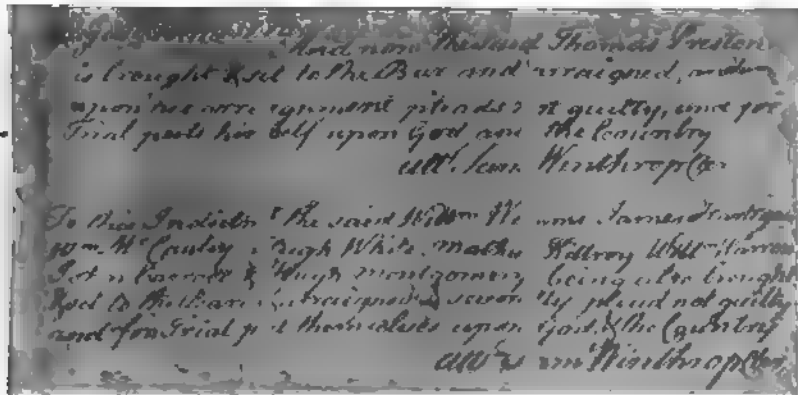 And now the said Thomas Preston
is brought & set to the Bar and arraigned, and
upon his arraignment pleads not guilty, and for
Trial puts himself upon God and the Country
att. Sam Winthrop Cler
To this Indictmt the said Willm We ms James Hartigan
Wm. McCauley Hugh White. Mathw Killroy Willm Warren
John Carrol & Hugh Montgomery being also brought
& set to the Bar & arraigned severally plead not guilty
and for Trial put themselves upon God & the Country
att. Sam Winthrop Cler